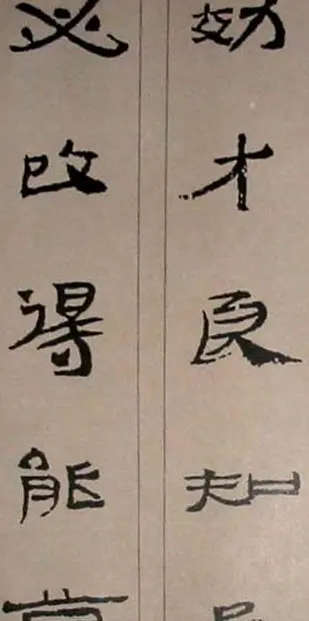 効才良知
必改得能